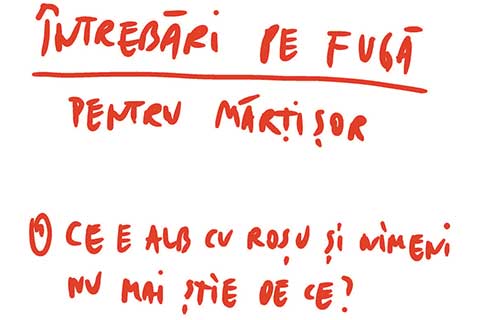 ÎNTREBĂRI PE FUGĂ
PENTRU MĂRȚIȘOR
O CE E ALB CU ROȘU ȘI NIMENI
NU MAI ȘTIE DE CE?